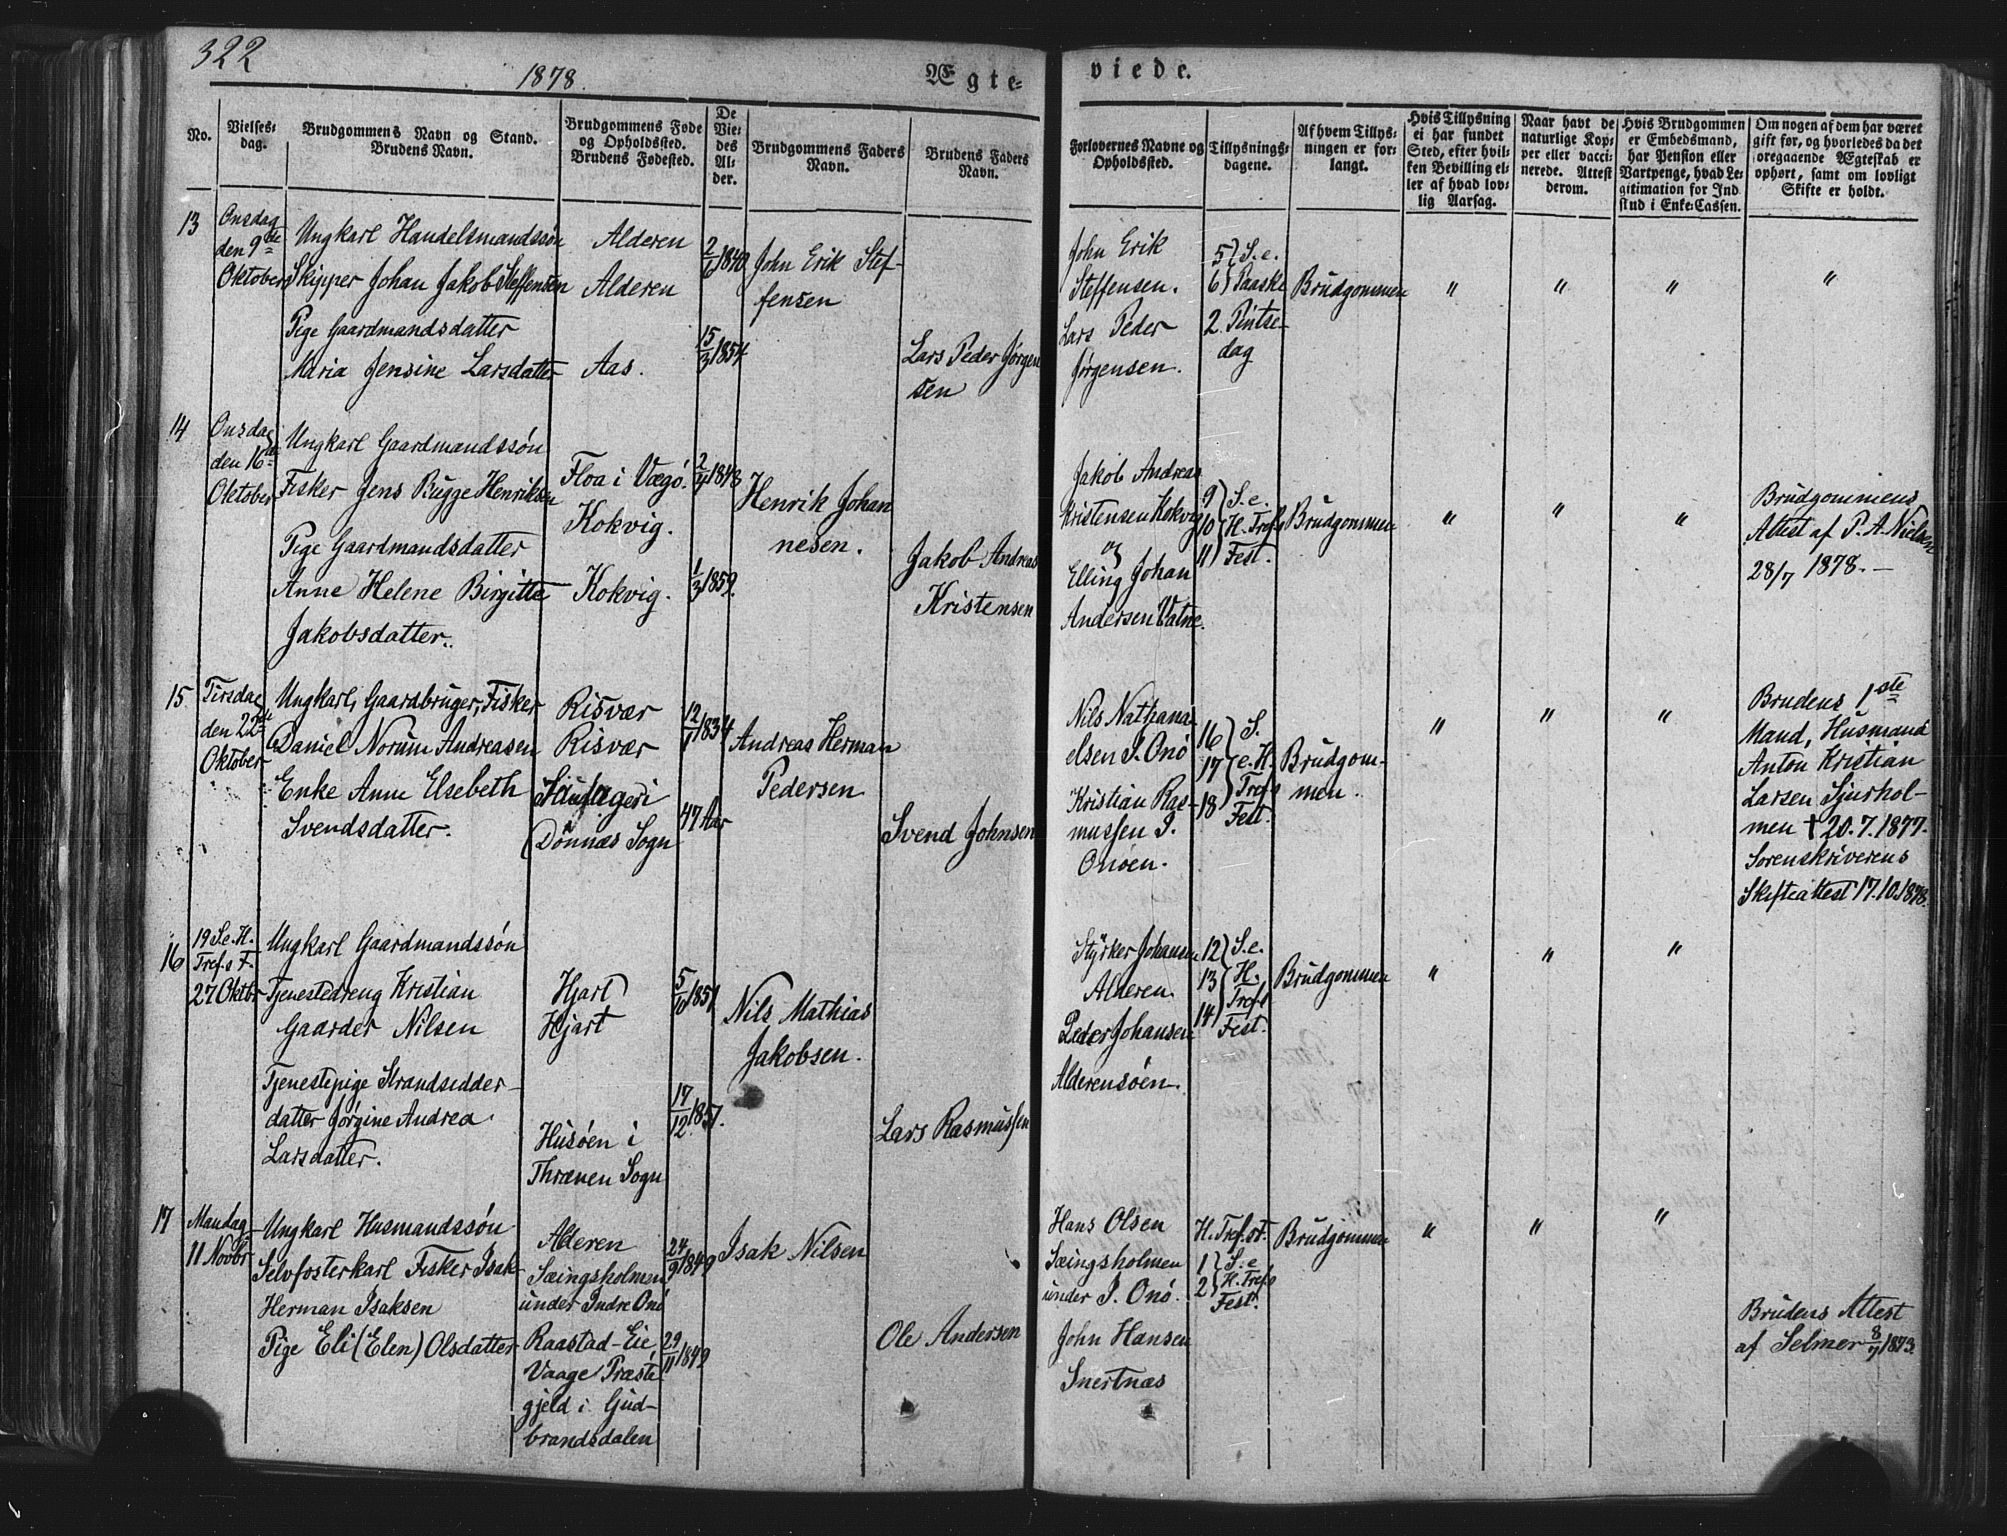 322
1878.
Ægte-
viede.
No.
Vielses-
dag.
Brudgommens Navn og Stand.
Brudens Navn.
Brudgommens Føde
og Opholdssted.
Brudens Fødested.
De
Vie-
des
Al-
der.
Brudgommens Faders
Navn.
Brudens Faders
Navn.
Forlovernes Navne og
Opholdssted.
Tillysnings-
dagene.
Af hvem Tillys-
ningen er for-
langt.
Hvis Tillysning
ei har fundet
Sted, efter hvil-
ken Bevilling el-
ler af hvad lov-
lig Aarsag.
Naar havt de
naturlige Kop-
per eller vacci-
nerede. Attest
derom.
Hvis Brudgommen
er Embedsmand,
har Pension eller
Vartpenge, hvad Le-
gitimation for Ind
stud i Enke-Cassen.
Om nogen af dem har været
gift før, og hvorledes da det
foregaaende Ægteskab er
ophørt, samt om lovligt
Skifte er holdt.
13
Onsdag
den 9de
Oktober
Ungkarl Handelsmandssøn
Skipper Johan Jakob Steffensen
Pige Gaardmandsdatter
Maria Jensine Larsdatter
Alderen
Alderen
Aas.
2/1 1840
15/3 1854
John Erik Stef-
fensen
Lars Peder Jørgen
sen
John Erik
Steffensen.
Lars Peder
Jørgensen.
5 } S. e.
6 } Paaske
2. Pintse-
dag
Brudgommen
" " " "
14
Onsdag
den 16de
Oktober
Ungkarl Gaardmandssøn
Fisker Jens Bugge Henriksen
Pige Gaardmandsdatter
Anne Helene Birgitte
Jakobsdatter.
Floa i Vægø.
Kokvig.
Kokvig.
1843
1/3 1859.
Henrik Johan
nesen.
Jakob Andreas
Kristensen
Jakob Andreas
Kristensen Kokvig
og
Elling Johan
Andersen Vatne.
9 } S. e.
10 } H. Tref.s
11 } Fest.
Brudgommen
" " "
Brudgommens
Attest af P. A. Nielsen
28/7 1878. —
15
Tirsdag
den 22de
Oktober
Ungkarl, Gaardbruger, Fisker
Daniel Norum Andreasen
Enke Anne Elsebeth
Svendsdatter.
Risvær
Risvær
i
Dønnæs Sogn
12/7 1834
47 Aar
Andreas Herman
Pedersen
Svend Johnsen
Nils Nathana-
elsen I. Onø
Kristian Ras-
mussen I.
Onøen.
16 } S.
17 } e. H.
18 } Tref.s
Fest.
Brudgom-
men.
" " "
Brudens 1ste
Mand, Husmand
Anton Kristian
Larsen Sjurhol-
men † 20.7.1877.
Sorenskriverens
Skifteattest 17.10.1878.
16
19 S. e. H.
Tref.s F.
27 Oktbr
Ungkarl Gaardmandssøn
Tjenestedreng Kristian
Gaarder Nilsen
Tjenestepige Strandsidder-
datter Jørgine Andrea
Larsdatter.
Hjart
Hjart
Husøen i
Thrænen Sogn
5/10 1851
17/12 1851.
Nils Mathias
Jakobsen.
Lars Rasmussen
Styrker Johansen
Alderen.
Peder Johansen
Alderensøen.
12 } S. e.
13 } H.
14 } Tref.s
Fest.
Brudgommen
" " "
17
Mandag
11 Novbr
Ungkarl Husmandssøn
Selvfosterkarl Fisker Isak
Herman Isaksen
Pige Eli (Elen) Olsdatter
Alderen
Sæingsholmen
under Indre Onø
Raastad-Eie
Vaage Præste
gjeld i Gud-
brandsdalen
24/9 1849
29/11 1849
Isak Nilsen
Ole Andersen
Hans Olsen
Sæingsholmen
under I. Onø.
John Hansen
Snertnæs
H. Tref. st.
1 } S. e
2 } H. Tref.s
Fest.
Brudgommen
" " "
Brudens Attest
af Selmer 8/7 1873.